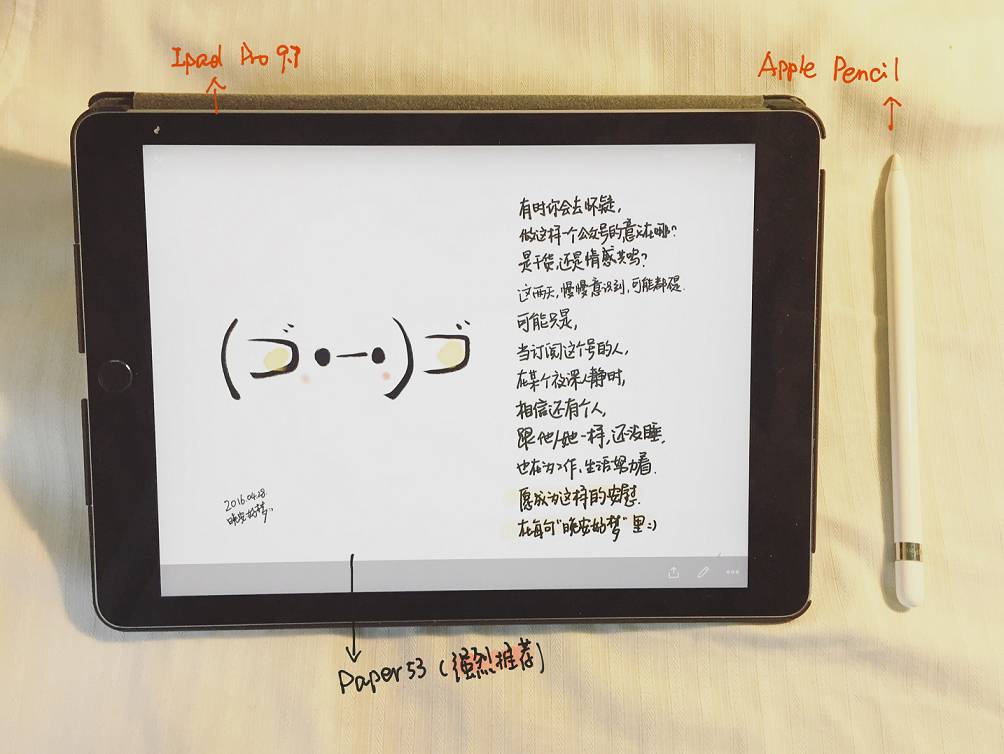 Ipad Pro 9.7
Apple Pencil
有时你会去怀疑,
做这样一个公众号的意义在哪?
是干货,还是情感共鸣?
这两天,慢慢意识到,可能都错.
可能只是,
当订阅这个号的人,
在某个夜深人静时,
相信还有个人,
跟他/她一样,还没睡,
也在为工作、生活努力着.
愿成为这样的安慰.
在每句"晚安好梦"里:)
(ゴ•一•)ゴ
2016.04.28.
晚安好梦:)
Paper53 (强烈推荐)